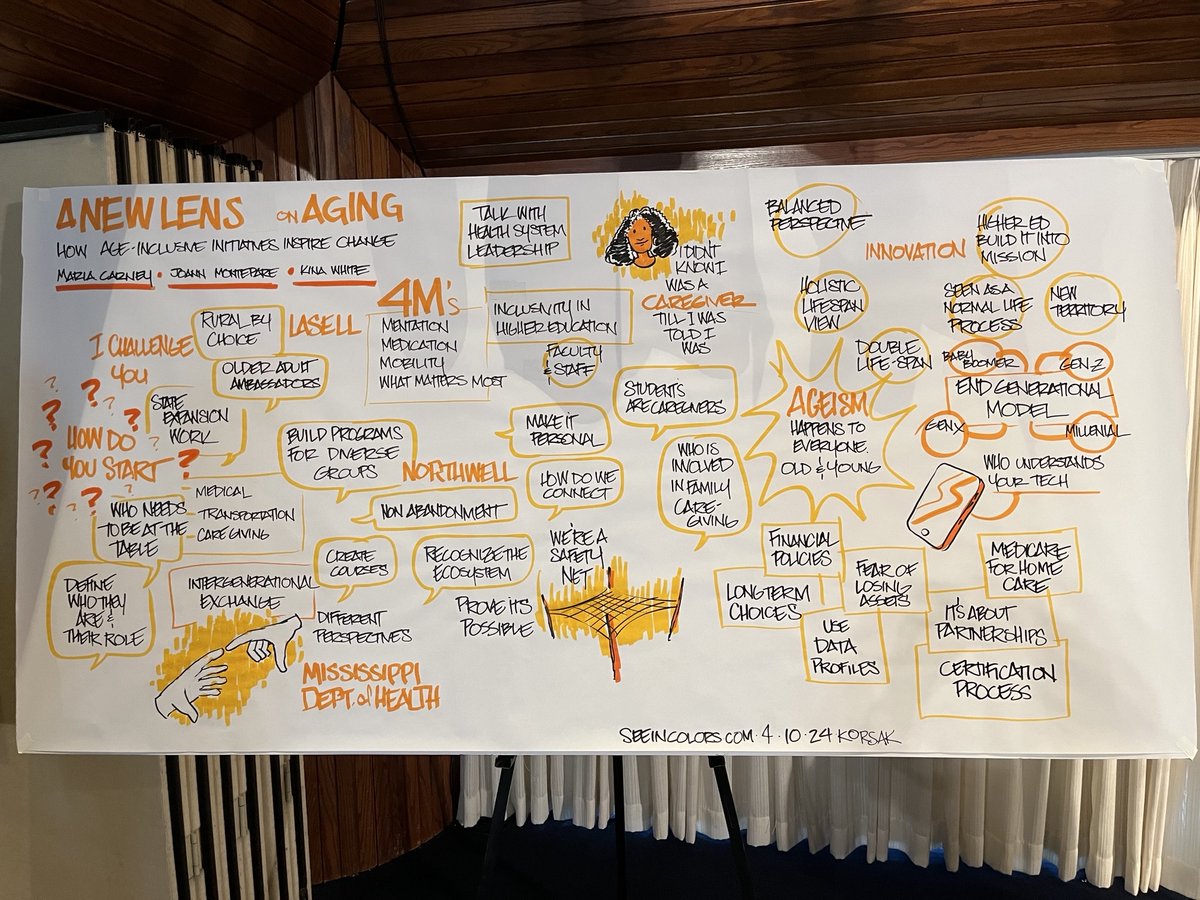 A NEW LENS ON AGING
HOW AGE-INCLUSIVE INITIATIVES INSPIRE CHANGE
MARIA CARNEY • JOANN MONTEPARE • KINA WHITE
I CHALLENGE
YOU
RURAL BY
CHOICE
LASELL
OLDER ADULT
AMBASSADORS
STATE
EXPANSION
WORK
? ? ? ? ? ? ?
HOW DO
YOU START
? ? ? ? ? ?
WHO NEEDS
TO BE AT THE
TABLE
MEDICAL
TRANSPORTATION
CAREGIVING
DEFINE
WHO THEY
ARE &
THEIR ROLE
INTERGENERATIONAL
EXCHANGE
DIFFERENT
PERSPECTIVES
MISSISSIPPI
DEPT. of HEALTH
4M's
MENTATION
MEDICATION
MOBILITY
WHAT MATTERS MOST
TALK WITH
HEALTH SYSTEM
LEADERSHIP
INCLUSIVITY IN
HIGHER EDUCATION
FACULTY
& STAFF
BUILD PROGRAMS
FOR DIVERSE
GROUPS
NORTHWELL
NON ABANDONMENT
CREATE
COURSES
RECOGNIZE THE
ECOSYSTEM
MAKE IT
PERSONAL
HOW DO WE
CONNECT
WE'RE A
SAFETY
NET
PROVE ITS
POSSIBLE
I DIDNT
KNOW I
WAS A
CAREGIVER
TILL I WAS
TOLD I
WAS
STUDENTS
ARE CAREGIVERS
WHO IS
INVOLVED
IN FAMILY
CARE-
GIVING
BALANCED
PERSPECTIVE
HOLISTIC
LIFESPAN
VIEW
DOUBLE
LIFE-SPAN
AGEISM
HAPPENS TO
EVERYONE.
OLD & YOUNG
INNOVATION
HIGHER ED
BUILD IT INTO
MISSION
SEEN AS A
NORMAL LIFE
PROCESS
NEW
TERRITORY
BABY
BOOMER
GEN-Z
END GENERATIONAL
MODEL
GENX
MILLENIAL
WHO UNDERSTANDS
YOUR TECH
FINANCIAL
POLICIES
LONG TERM
CHOICES
FEAR OF
LOSING
ASSETS
USE
DATA
PROFILES
MEDICARE
FOR HOME
CARE
IT'S ABOUT
PARTNERSHIPS
CERTIFICATION
PROCESS
SEEINCOLORS.COM • 4 • 10 • 24 KORSAK